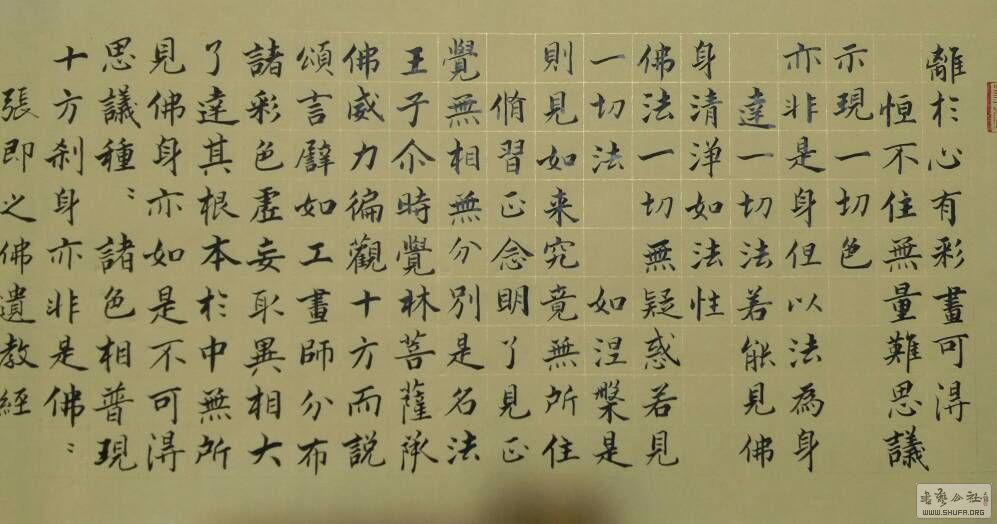 離於心有彩畫可得
恒不住無量難思議
示現一切色
亦非是身但以法為身
達一切法若能見佛
身清淨如法性
佛法一切無疑惑若見
一切法 如涅槃是
則見如来究竟無所住
脩習正念明了見正
覺無相無分別是名法
王子尒時覺林菩薩承
佛威力徧觀十方而説
頌言譬如工畫師分布
諸彩色虛妄取異相大
了達其根本於中無所
見佛身亦如是不可得
思議種〻諸色相普現
十方刹身亦非是佛〻
張即之佛遺教經
WWW.SHUFA.ORG